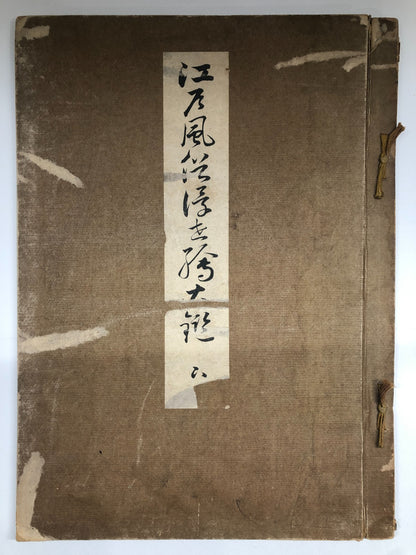 江戸風俗浮世繪大鑑 六